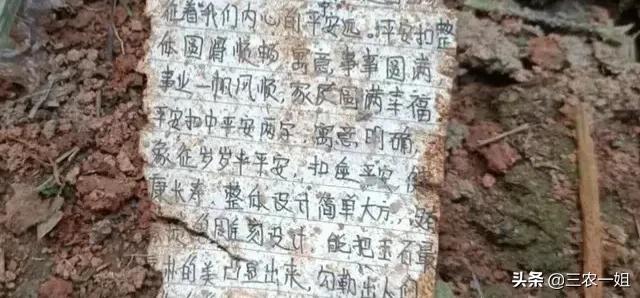 征着我们内心的平安远。平安扣整
体圆滑顺畅 寓意事事圆满
事业一帆风顺，家庭圆满幸福
平安扣中平安两字，寓意明确，
象征岁岁平平安，扣每平安，健
康长寿，整体设计简单大方，
的雕刻设计，能把玉石最
的美凸显出来，勾勒出人们
头条 @三农一姐